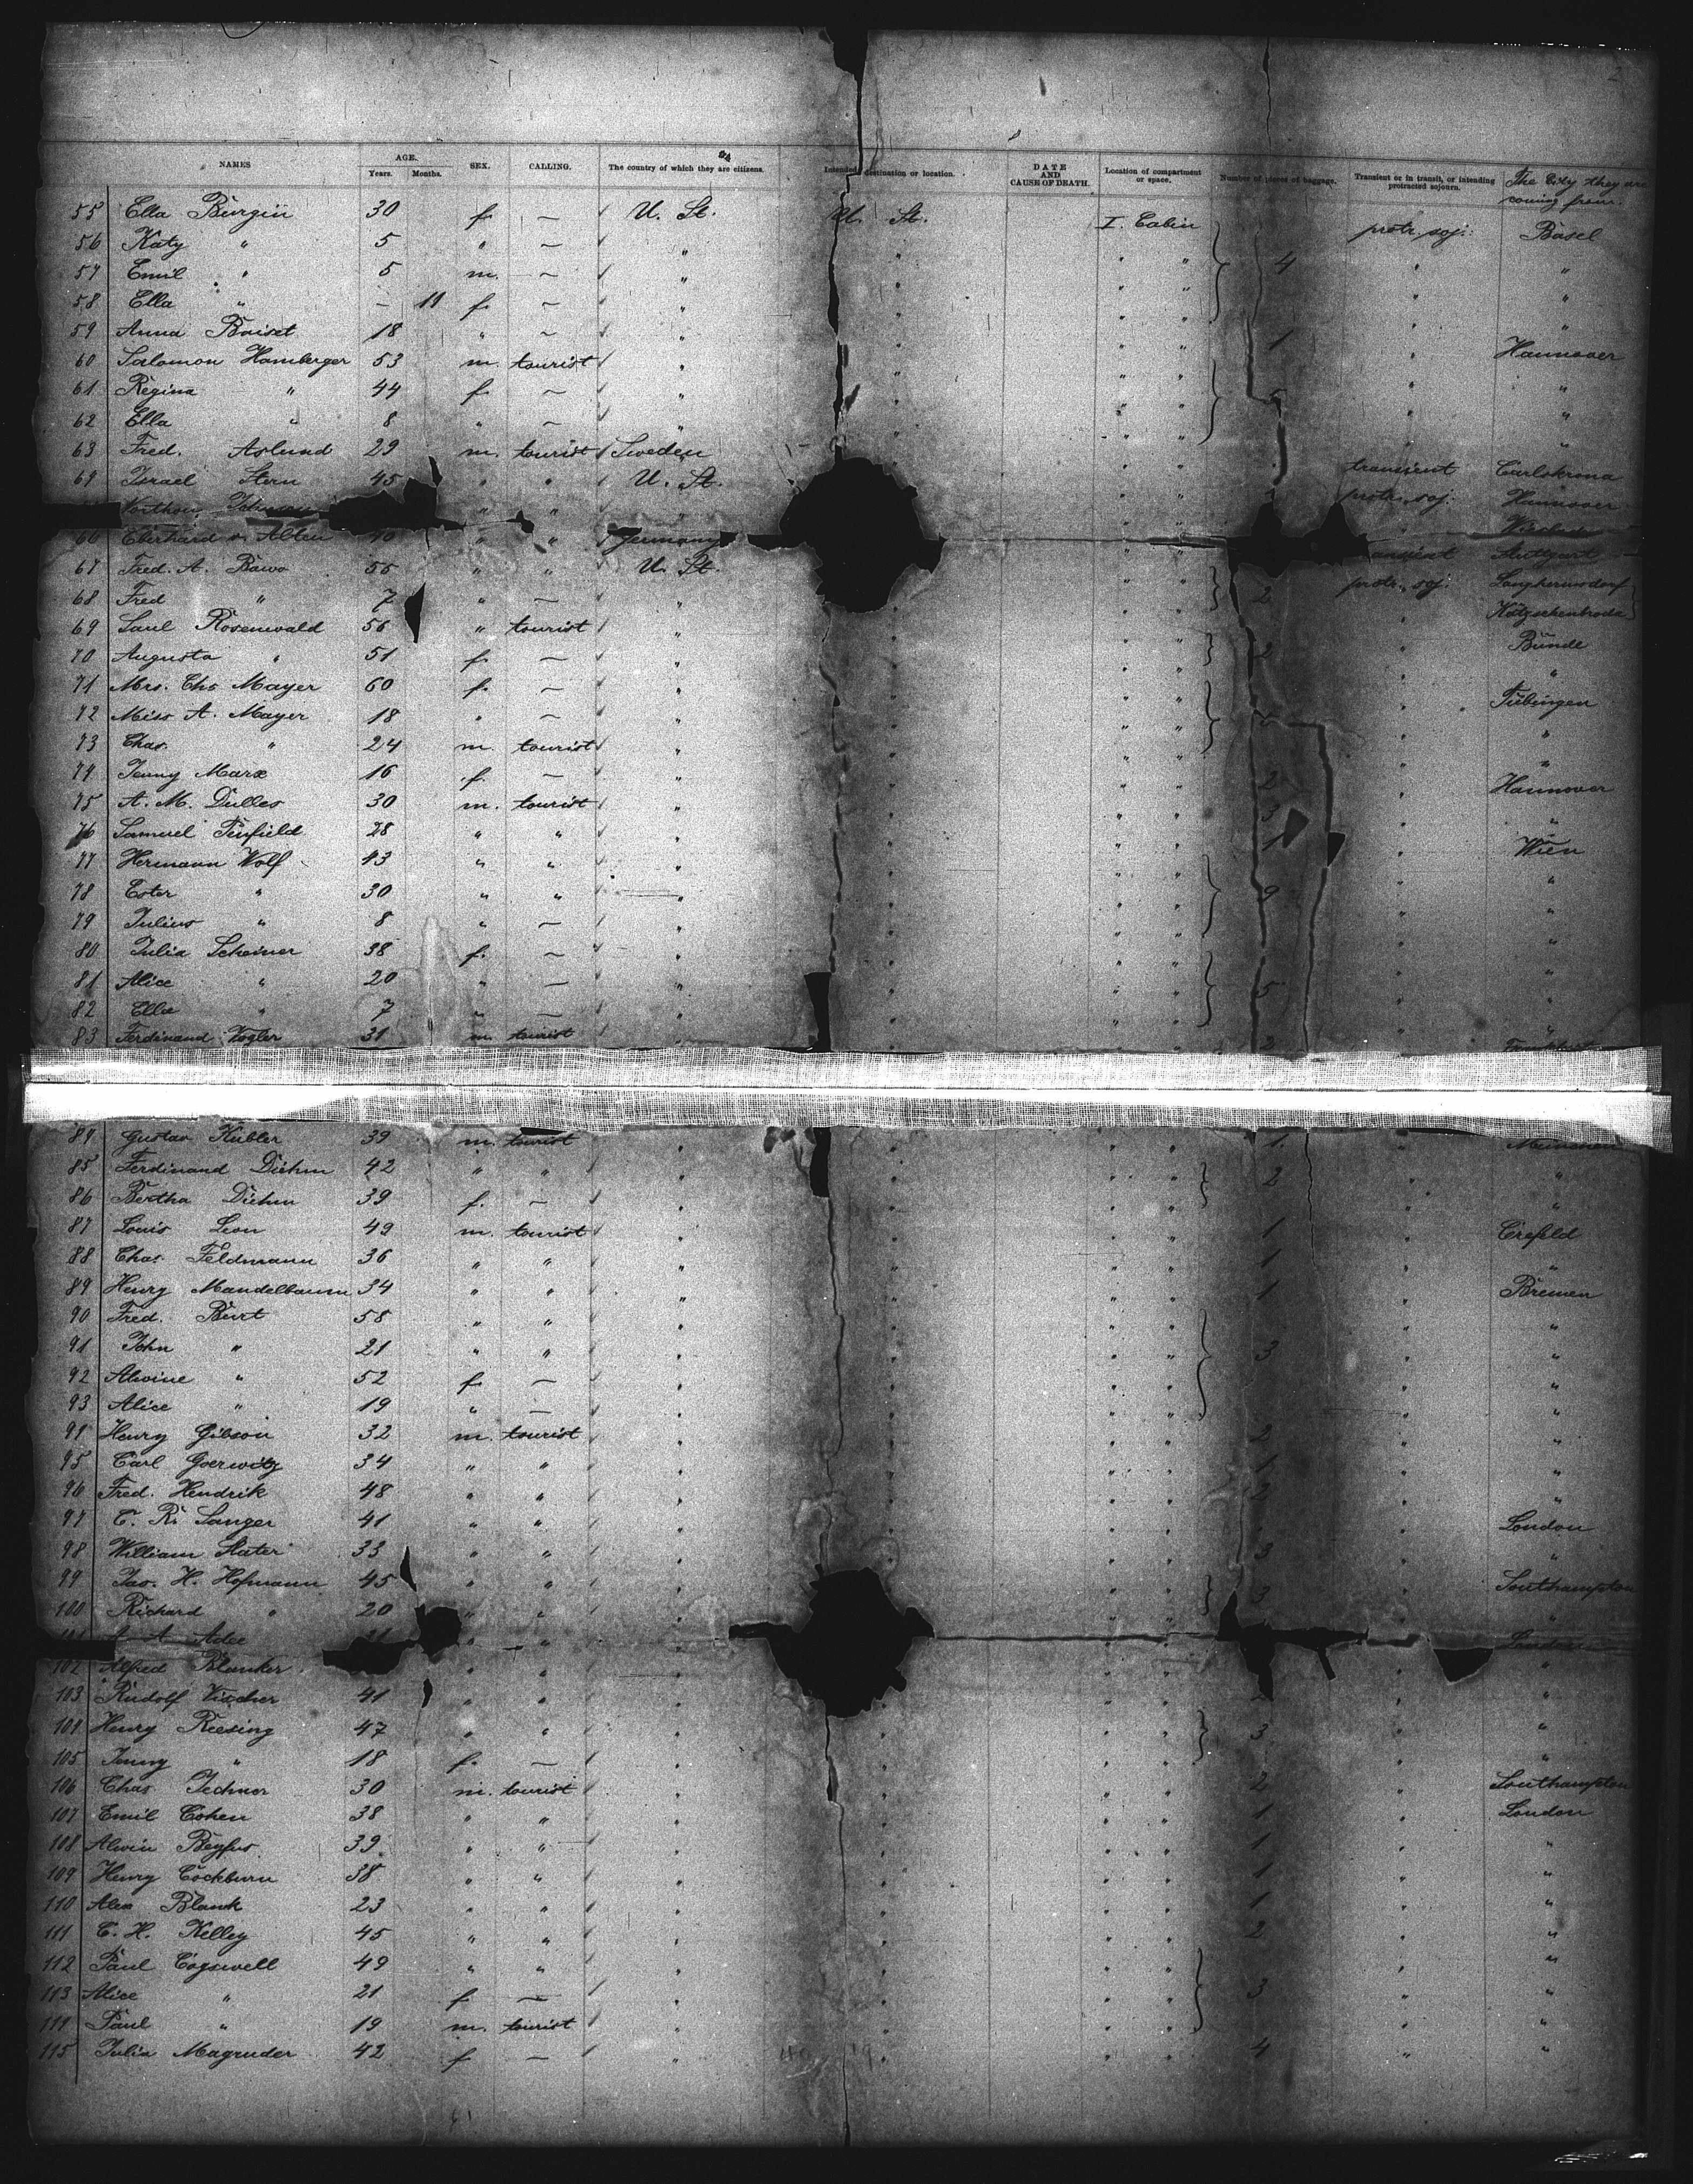 NAMES AGE. Years. Months. SEX. CALLING. The country of which they are citizens. Intended destination or location. DATE AND CAUSE OF DEATH. Location of compartment or space. Number of pieces of baggage. Transient or in transit, or intending protracted sojourn. The City they are coming from.
55 Ella Bürgin 30 f. — U. St. U. St. I. Cabin protr. soj. Basel
56 Katy " 5 " — " " " " " "
57 Emil " 5 m. — " " " " 4 " "
58 Ella " — 11 f. — " " " " " "
59 Anna 18 " — " " " " 1 " Hannover
60 Salomon Hamberger 53 m. tourist " " " " " "
61 Regina " 44 f. — " " " " 5 " "
62 Ella " 8 " — " " " " " "
63 Fred. Aslund 29 m. tourist Sweden " " " transient Carlskrona
64 Israel Stern 45 " " U. St. " " protr. soj. Hannover
" " " "
66 Eberhard v. Alten 40 " " Germany " " Stuttgart
67 Fred. A. 55 " " U. St. " " protr. soj.
68 Fred " 7 " — " " " " 2 " Kötzschenbroda
69 Saul Rosenwald 56 " tourist " " " " " Bünde
70 Augusta " 51 f. — " " " " 2 " "
71 Mrs. Chs Mayer 60 f. — " " " " " Tübingen
72 Miss A. Mayer 18 " — " " " " 5 " "
73 Chas. " 24 m. tourist " " " " " "
74 Jenny Marx 16 f. — " " " " 2 " Hannover
75 A. M. Dulles 30 m. tourist " " " " 3 " "
76 Samuel Penfield 28 " " " " " " 1 " Wien
77 Hermann Wolf 43 " " " " " " " "
78 Ester " 30 " " " " " " 9 " "
79 Julius " 8 " — " " " " " "
80 Julia Scheiner 38 f. — " " " " " "
81 Alice " 20 " — " " " " 5 " "
82 Ella " 7 " — " " " " " "
83 Ferdinand Vogler 31 m. tourist " " " 2 "
84 Gustav Kubler 39 m. tourist " " " " 1 " München
85 Ferdinand Diehm 42 " " " " " " 2 " "
86 Bertha Diehm 39 f. — " " " " " "
87 Louis Leon 49 m. tourist " " " " 1 " Crefeld
88 Chas. Feldmann 36 " " " " " " 1 " "
89 Henry Mandelbaum 34 " " " " " " 1 " Bremen
90 Fred. Burt 58 " " " " " " " "
91 John " 21 " " " " " " 3 " "
92 Alwine " 52 f. — " " " " " "
93 Alice " 19 " — " " " " " "
94 Henry Gibson 32 m. tourist " " " " 2 " "
95 Carl Goerwitz 34 " " " " " " 1 " "
96 Fred. Hendrik 48 " " " " " " 2 " "
97 C. R. Sanger 41 " " " " " " " London
98 William Slater 33 " " " " " " 3 " "
99 Jas. H. Hofmann 45 " " " " " " 3 " Southampton
100 Richard " 20 " " " " " " " "
A. A. Adee " " " " London
102 Alfred Blanker " " " " " " " "
103 Rudolf Vischer 41 " " " " " " 2 " "
104 Henry Reesing 47 " " " " " " 3 " "
105 Jenny " 18 f. — " " " " " "
106 Chas 30 m. tourist " " " " 2 " Southampton
107 Emil Cohen 38 " " " " " " 1 " London
108 Alwin Beyfus 39 " " " " " " 1 " "
109 Henry Cockburn 38 " " " " " " 1 " "
110 Alex Blank 23 " " " " " " 1 " "
111 C. H. Kelley 45 " " " " " " 2 " "
112 Paul Cogswell 49 " " " " " " " "
113 Alice " 21 f. — " " " " 3 " "
114 Paul " 19 m. tourist " " " " " "
115 Julia Magruder 42 f. — " " " " 4 " "